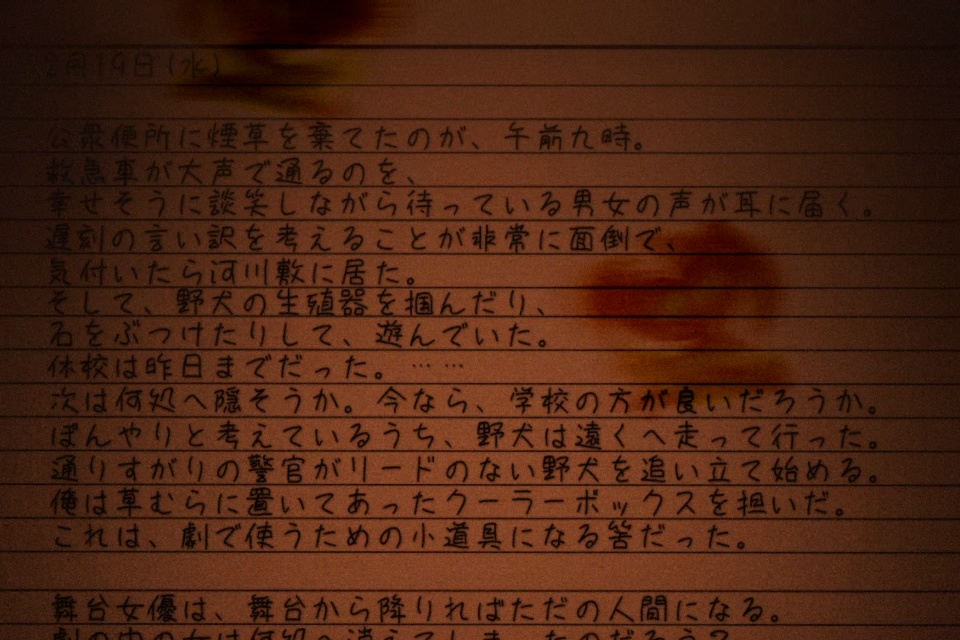 2月19日(水)
公衆便所に煙草を棄てたのが、午前九時。
救急車が大声で通るのを、
幸せそうに談笑しながら待っている男女の声が耳に届く。
遅刻の言い訳を考えることが非常に面倒で、
気付いたら河川敷に居た。
そして、野犬の生殖器を掴んだり、
石をぶつけたりして、遊んでいた。
休校は昨日までだった。……
次は何処へ隠そうか。今なら、学校の方が良いだろうか。
ぼんやりと考えているうち、野犬は遠くへ走って行った。
通りすがりの警官がリードのない野犬を追い立て始める。
俺は草むらに置いてあったクーラーボックスを担いだ。
これは、劇で使うための小道具になる筈だった。
舞台女優は、舞台から降りればただの人間になる。
劇の中の女は何処へ消えてしまったのだろう?